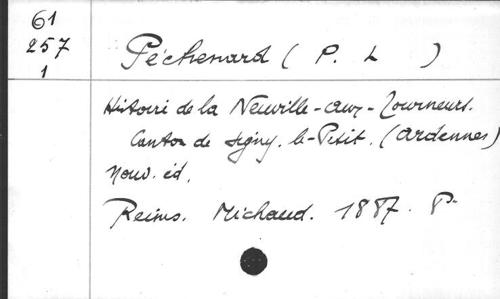 61
257
1
Péchenard ( P. L )
Histoire de la Neuville-aux-Tourneurs.
Canton de Signy-le-Petit. (Ardennes)
Nouv. éd.
Reims. Michaud. 1887. P.